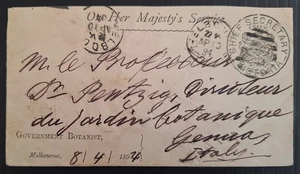 On Her Majesty's Service.
CHIEF SECRETARY
VICTORIA
Mr le Professeur
Dr Pentzig, Directeur
du Jardin botanique
Genoa
Italy.
GOVERNMENT BOTANIST,
Melbourne, 8/4/1894